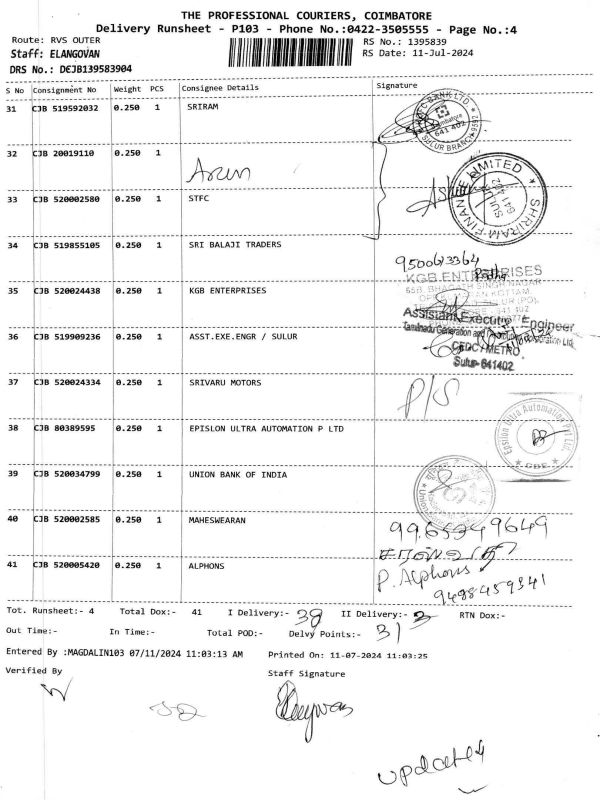 THE PROFESSIONAL COURIERS, COIMBATORE
Delivery Runsheet - P103 - Phone No.:0422-3505555 - Page No.:4
Route: RVS OUTER RS No.: 1395839
Staff: ELANGOVAN RS Date: 11-Jul-2024
DRS No.: DEJB139583904
S No Consignment No Weight PCS Consignee Details Signature
31 CJB 519592032 0.250 1 SRIRAM
BANK LTD
641 402
SULUR BRANCH
32 CJB 20019110 0.250 1
Arun
33 CJB 520002580 0.250 1 STFC
SHRIRAM FINANCE LIMITED
SULUR
641 402
34 CJB 519855105 0.250 1 SRI BALAJI TRADERS
35 CJB 520024438 0.250 1 KGB ENTERPRISES
KGB ENTERPRISES
Assistant Executive Engineer
Tamilnadu Generation and
36 CJB 519909236 0.250 1 ASST.EXE.ENGR / SULUR
CEDC / METRO
Sulur-641402
37 CJB 520024334 0.250 1 SRIVARU MOTORS
P/S
38 CJB 80389595 0.250 1 EPISLON ULTRA AUTOMATION P LTD
Epsilon Ultra Automation Pvt Ltd.
CBE
39 CJB 520034799 0.250 1 UNION BANK OF INDIA
40 CJB 520002585 0.250 1 MAHESWEARAN
9965349649
41 CJB 520005420 0.250 1 ALPHONS
P. Alphons
9488459341
Tot. Runsheet:- 4 Total Dox:- 41 I Delivery:- 38 II Delivery:- 3 RTN Dox:-
Out Time:- In Time:- Total POD:- Delvy Points:- 31
Entered By :MAGDALIN103 07/11/2024 11:03:13 AM Printed On: 11-07-2024 11:03:25
Verified By Staff Signature
updated